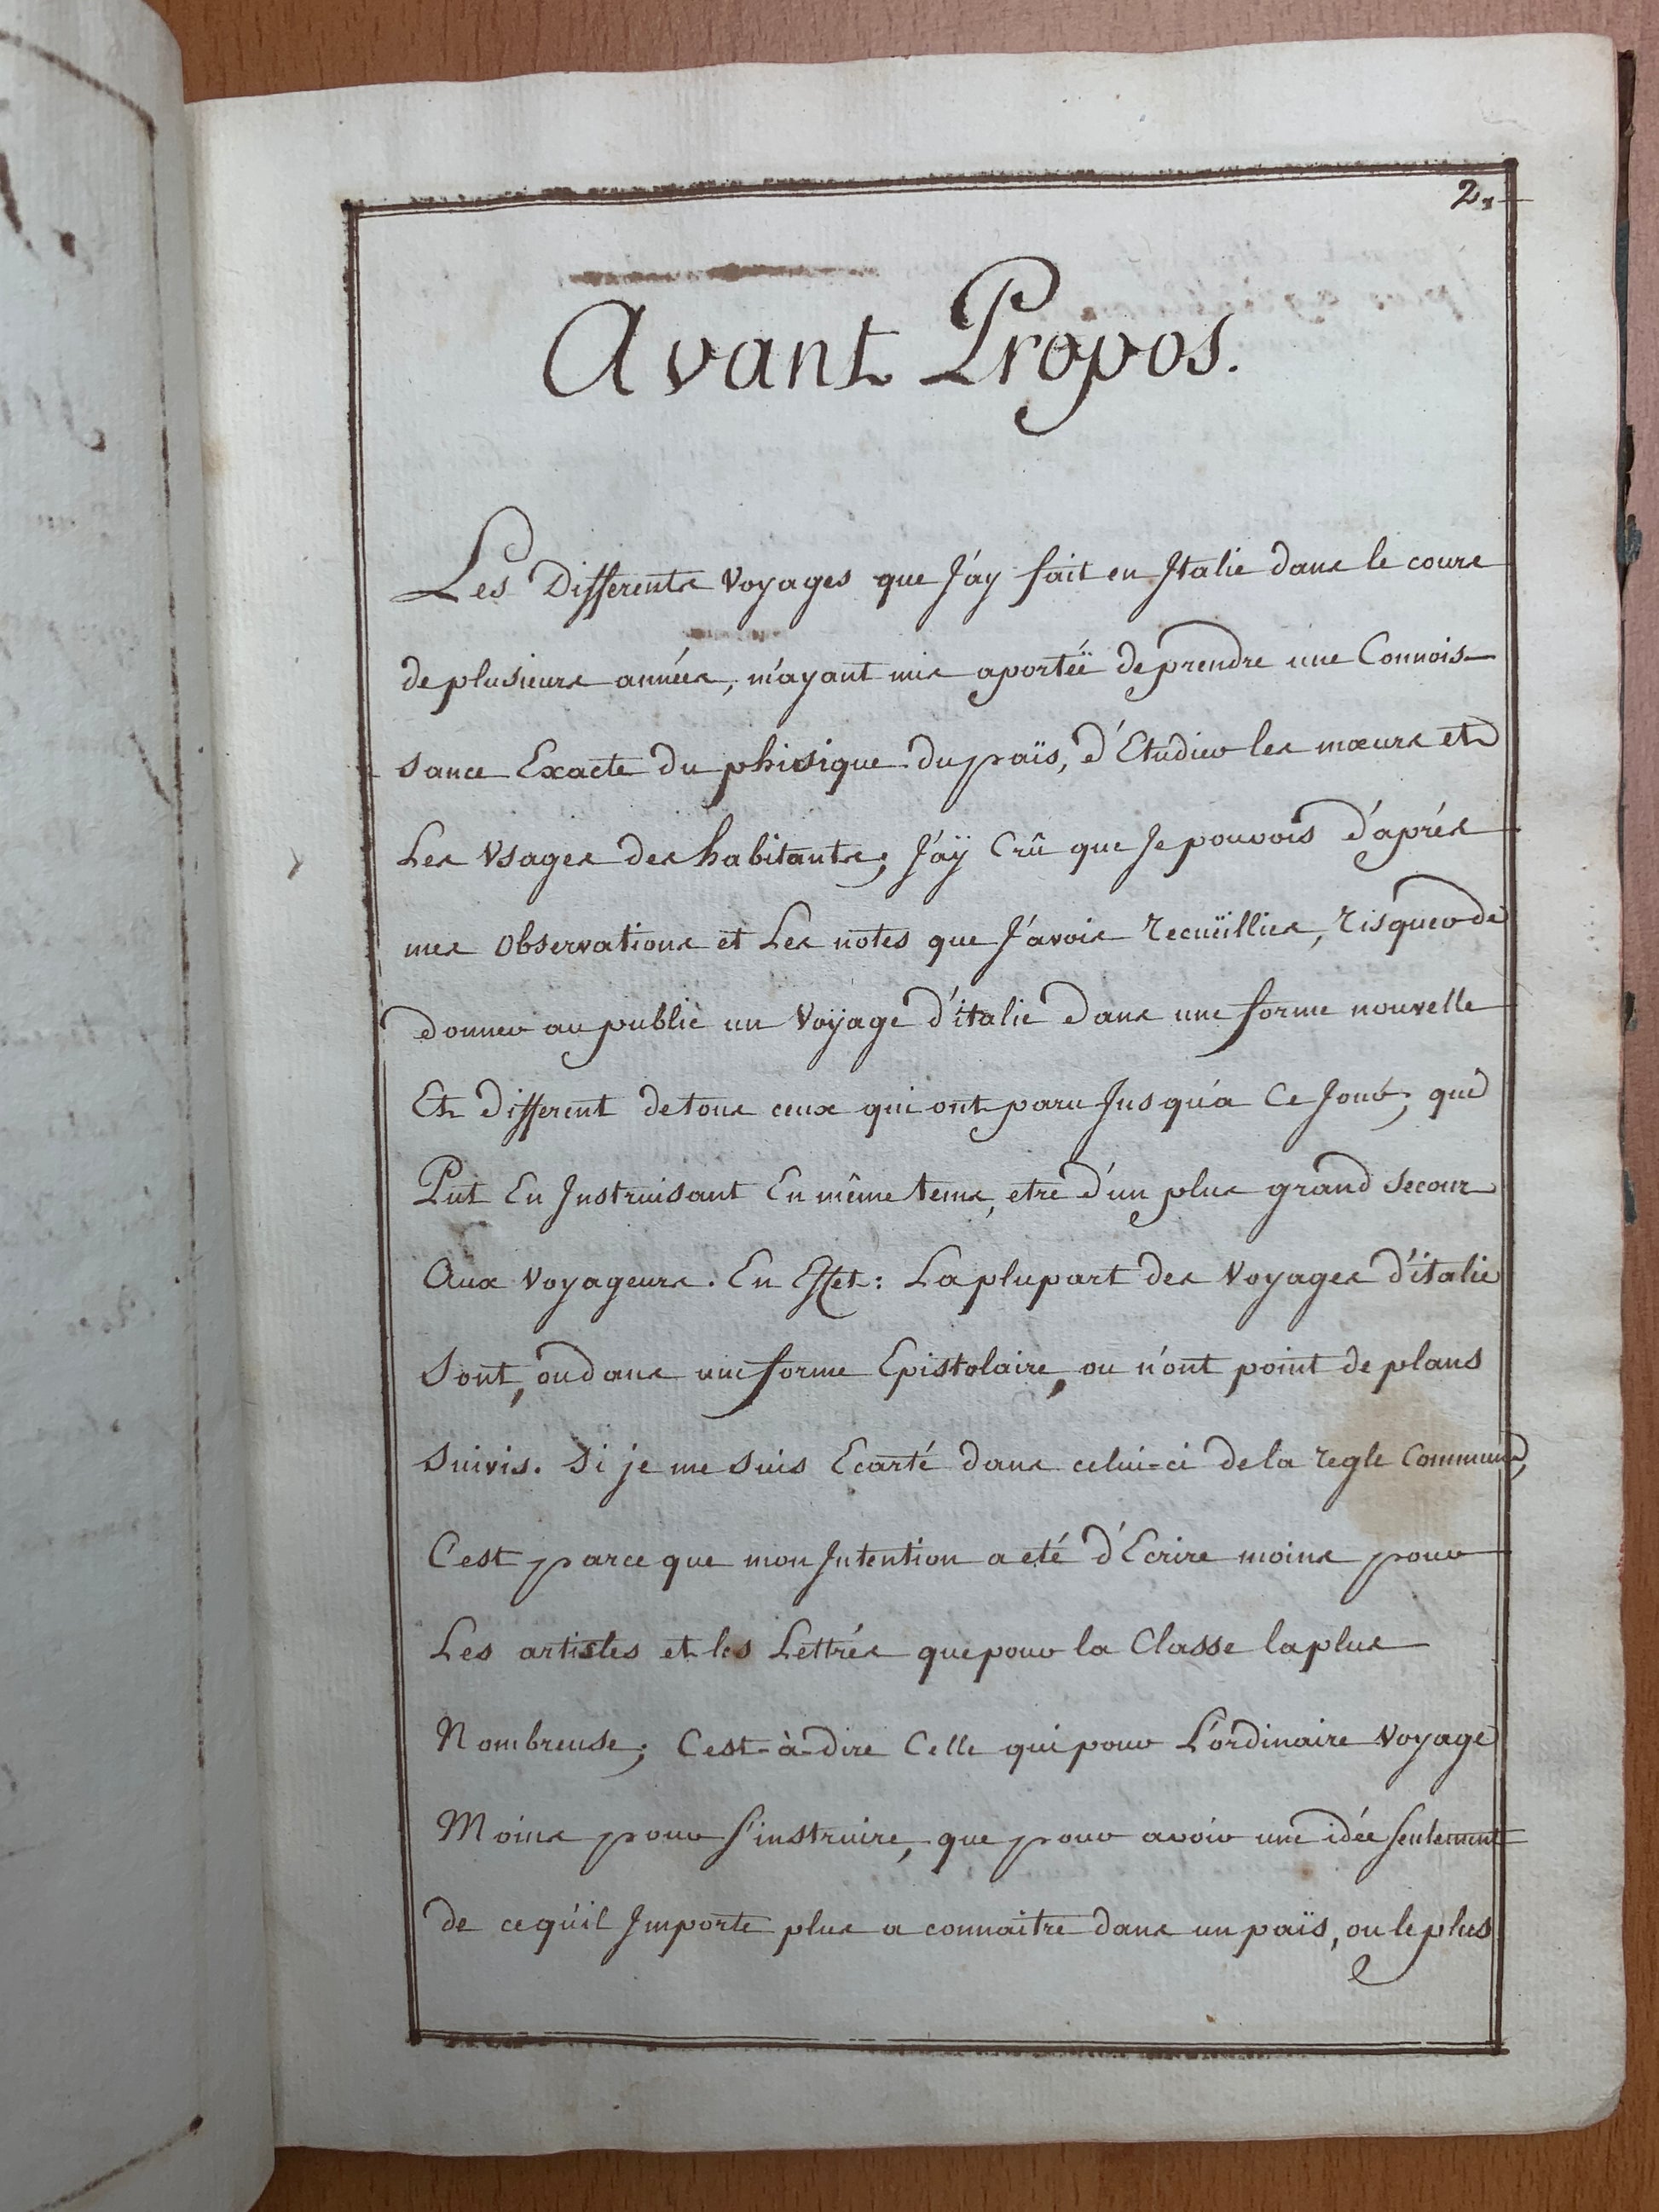 2.
Avant Propos.
Les Differents Voyages que J'ay fait en Italie dans le cours
de plusieurs années, m'ayant mis a portéë de prendre une Connois-
sance Exacte du phisique du païs, d'Etudier les mœurs et
Les Usages des habitants; J'aÿ Crû que Je pouvois d'aprés
mes observations et Les notes que J'avois recueïllies, risquer de
donner au public un Voÿage d'italie dans une forme nouvelle
Et different de tous ceux qui ont paru Jusqu'a Ce Jour; qui
Put En Instruisant En même tems, etre d'un plus grand Secour
Aux Voyageurs. En Effet: La plupart des Voyages d'italie
Sont, ou dans une forme Epistolaire, ou n'ont point de plans
Suivis. Si je me Suis Ecarté dans celui-ci de la regle Commune,
C'est parce que mon Intention a eté d'Ecrire moins pour
Les artistes et les Lettrés que pour la Classe la plus
Nombreuse; C'est-à-dire Celle qui pour L'ordinaire Voyage
Moins pour S'instruire, que pour avoir une idée Seulement
de ce qu'il Importe plus a connaitre dans un païs, ou le plus